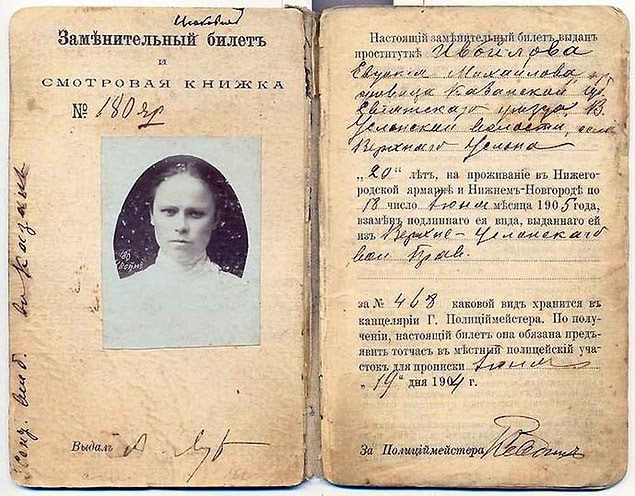 Замѣнительный билетъ
и
СМОТРОВАЯ КНИЖКА
№ 180 яр
Выдалъ
Настоящій замѣнительный билетъ выданъ
проституткѣ Ивойлова
Евдокія Михайлова
Казанской гу
Свіяжскаго уѣзда, В.
Услонской волости, села
Верхняго Услона
„20“ лѣтъ, на проживаніе въ Нижего-
родской ярмаркѣ и Нижнемъ-Новгородѣ по
18 число Іюня мѣсяца 1905 года,
взамѣнъ подлиннаго ея вида, выданнаго ей
изъ Верхне-Услонскаго
вол Прав.
за № 468 каковой видъ хранится въ
канцеляріи Г. Полиціймейстера. По полу-
ченіи, настоящій билетъ она обязана предъ-
явить тотчасъ въ мѣстный полицейскій уча-
стокъ для прописки Іюня
„19“ дня 1904 г.
За Полиціймейстера